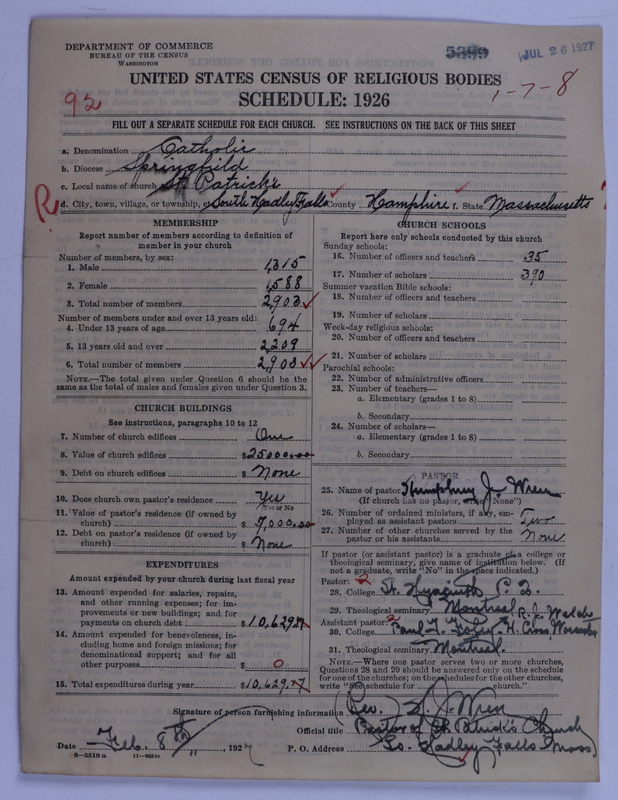 DEPARTMENT OF COMMERCE
BUREAU OF THE CENSUS
WASHINGTON
5399
JUL 26 1927
UNITED STATES CENSUS OF RELIGIOUS BODIES
SCHEDULE: 1926
92
1-7-8
FILL OUT A SEPARATE SCHEDULE FOR EACH CHURCH. SEE INSTRUCTIONS ON THE BACK OF THIS SHEET
a. Denomination Catholic
b. Diocese Springfield
c. Local name of church St. Patricks
d. City, town, village, or township, South Hadley Falls County Hampshire f. State Massachusetts
MEMBERSHIP
Report number of members according to definition of
member in your church
Number of members, by sex:
1. Male 1,315
2. Female 1,588
3. Total number of members 2903
Number of members under and over 13 years old:
4. Under 13 years of age 694
5. 13 years old and over 2,209
6. Total number of members 2,903
NOTE.—The total given under Question 6 should be
same as the total of males and females given under Question 3.
CHURCH BUILDINGS
See instructions, paragraphs 10 to 12
7. Number of church edifices One
8. Value of church edifices $25000.00
9. Debt on church edifices $ None
10. Does church own pastor's residence Yes
Yes or No
11. Value of pastor's residence (if owned by
church) $7,000.00
12. Debt on pastor's residence (if owned by
church) $ None
EXPENDITURES
Amount expended by your church during last fiscal year
13. Amount expended for salaries, repairs,
and other running expenses; for im-
provements or new buildings; and for
payments on church debt $10,629.77
14. Amount expended for benevolences, in-
cluding home and foreign missions; for
denominational support; and for all
other purposes $ 0
15. Total expenditures during year $10,629.77
CHURCH SCHOOLS
Report here only schools conducted by this church
Sunday schools:
16. Number of officers and teachers 35
17. Number of scholars 390
Summer vacation Bible schools:
18. Number of officers and teachers
19. Number of scholars
Week-day religious schools:
20. Number of officers and teachers
21. Number of scholars
Parochial schools:
22. Number of administrative officers
23. Number of teachers—
a. Elementary (grades 1 to 8)
b. Secondary
24. Number of scholars—
a. Elementary (grades 1 to 8)
b. Secondary
PASTOR
25. Name of pastor Humphrey J. Wren
(If church has no pastor, write "None")
26. Number of ordained ministers, if any, em-
ployed as assistant pastors Two
27. Number of other churches served by the
pastor or his assistants None
If pastor (or assistant pastor) is a graduate of a college or
theological seminary, give name of institution below. (If
not a graduate, write "No" in the space indicated.)
Pastor: 2
28. College St. Hyacinth P. Q.
29. Theological seminary Montreal R. J. Walsh
Assistant pastor: 2
30. College Paul F. Foley H. Cross Worcester
31. Theological seminary Montreal
NOTE.—Where one pastor serves two or more churches,
Questions 28 and 29 should be answered only on the schedule
for one of the churches; on the schedules for the other churches,
write "See schedule for church."
Signature of person furnishing information Rev. H. J. Wren
Official title Pastor of St. Patrick's Church
Date Feb. 8th, 1927 P. O. Address So. Hadley Falls Mass
8-5518a